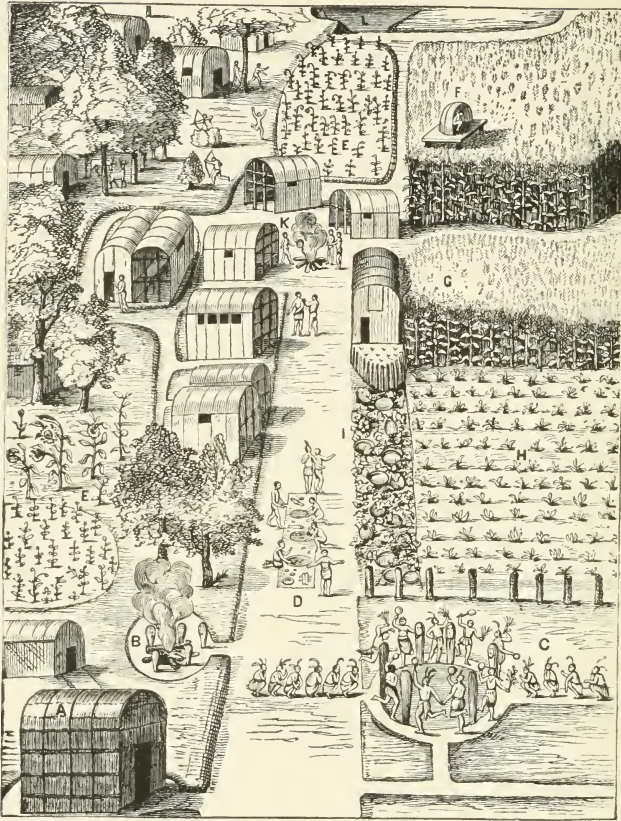 L
F
E
K
G
I
H
E
D
B
C
A